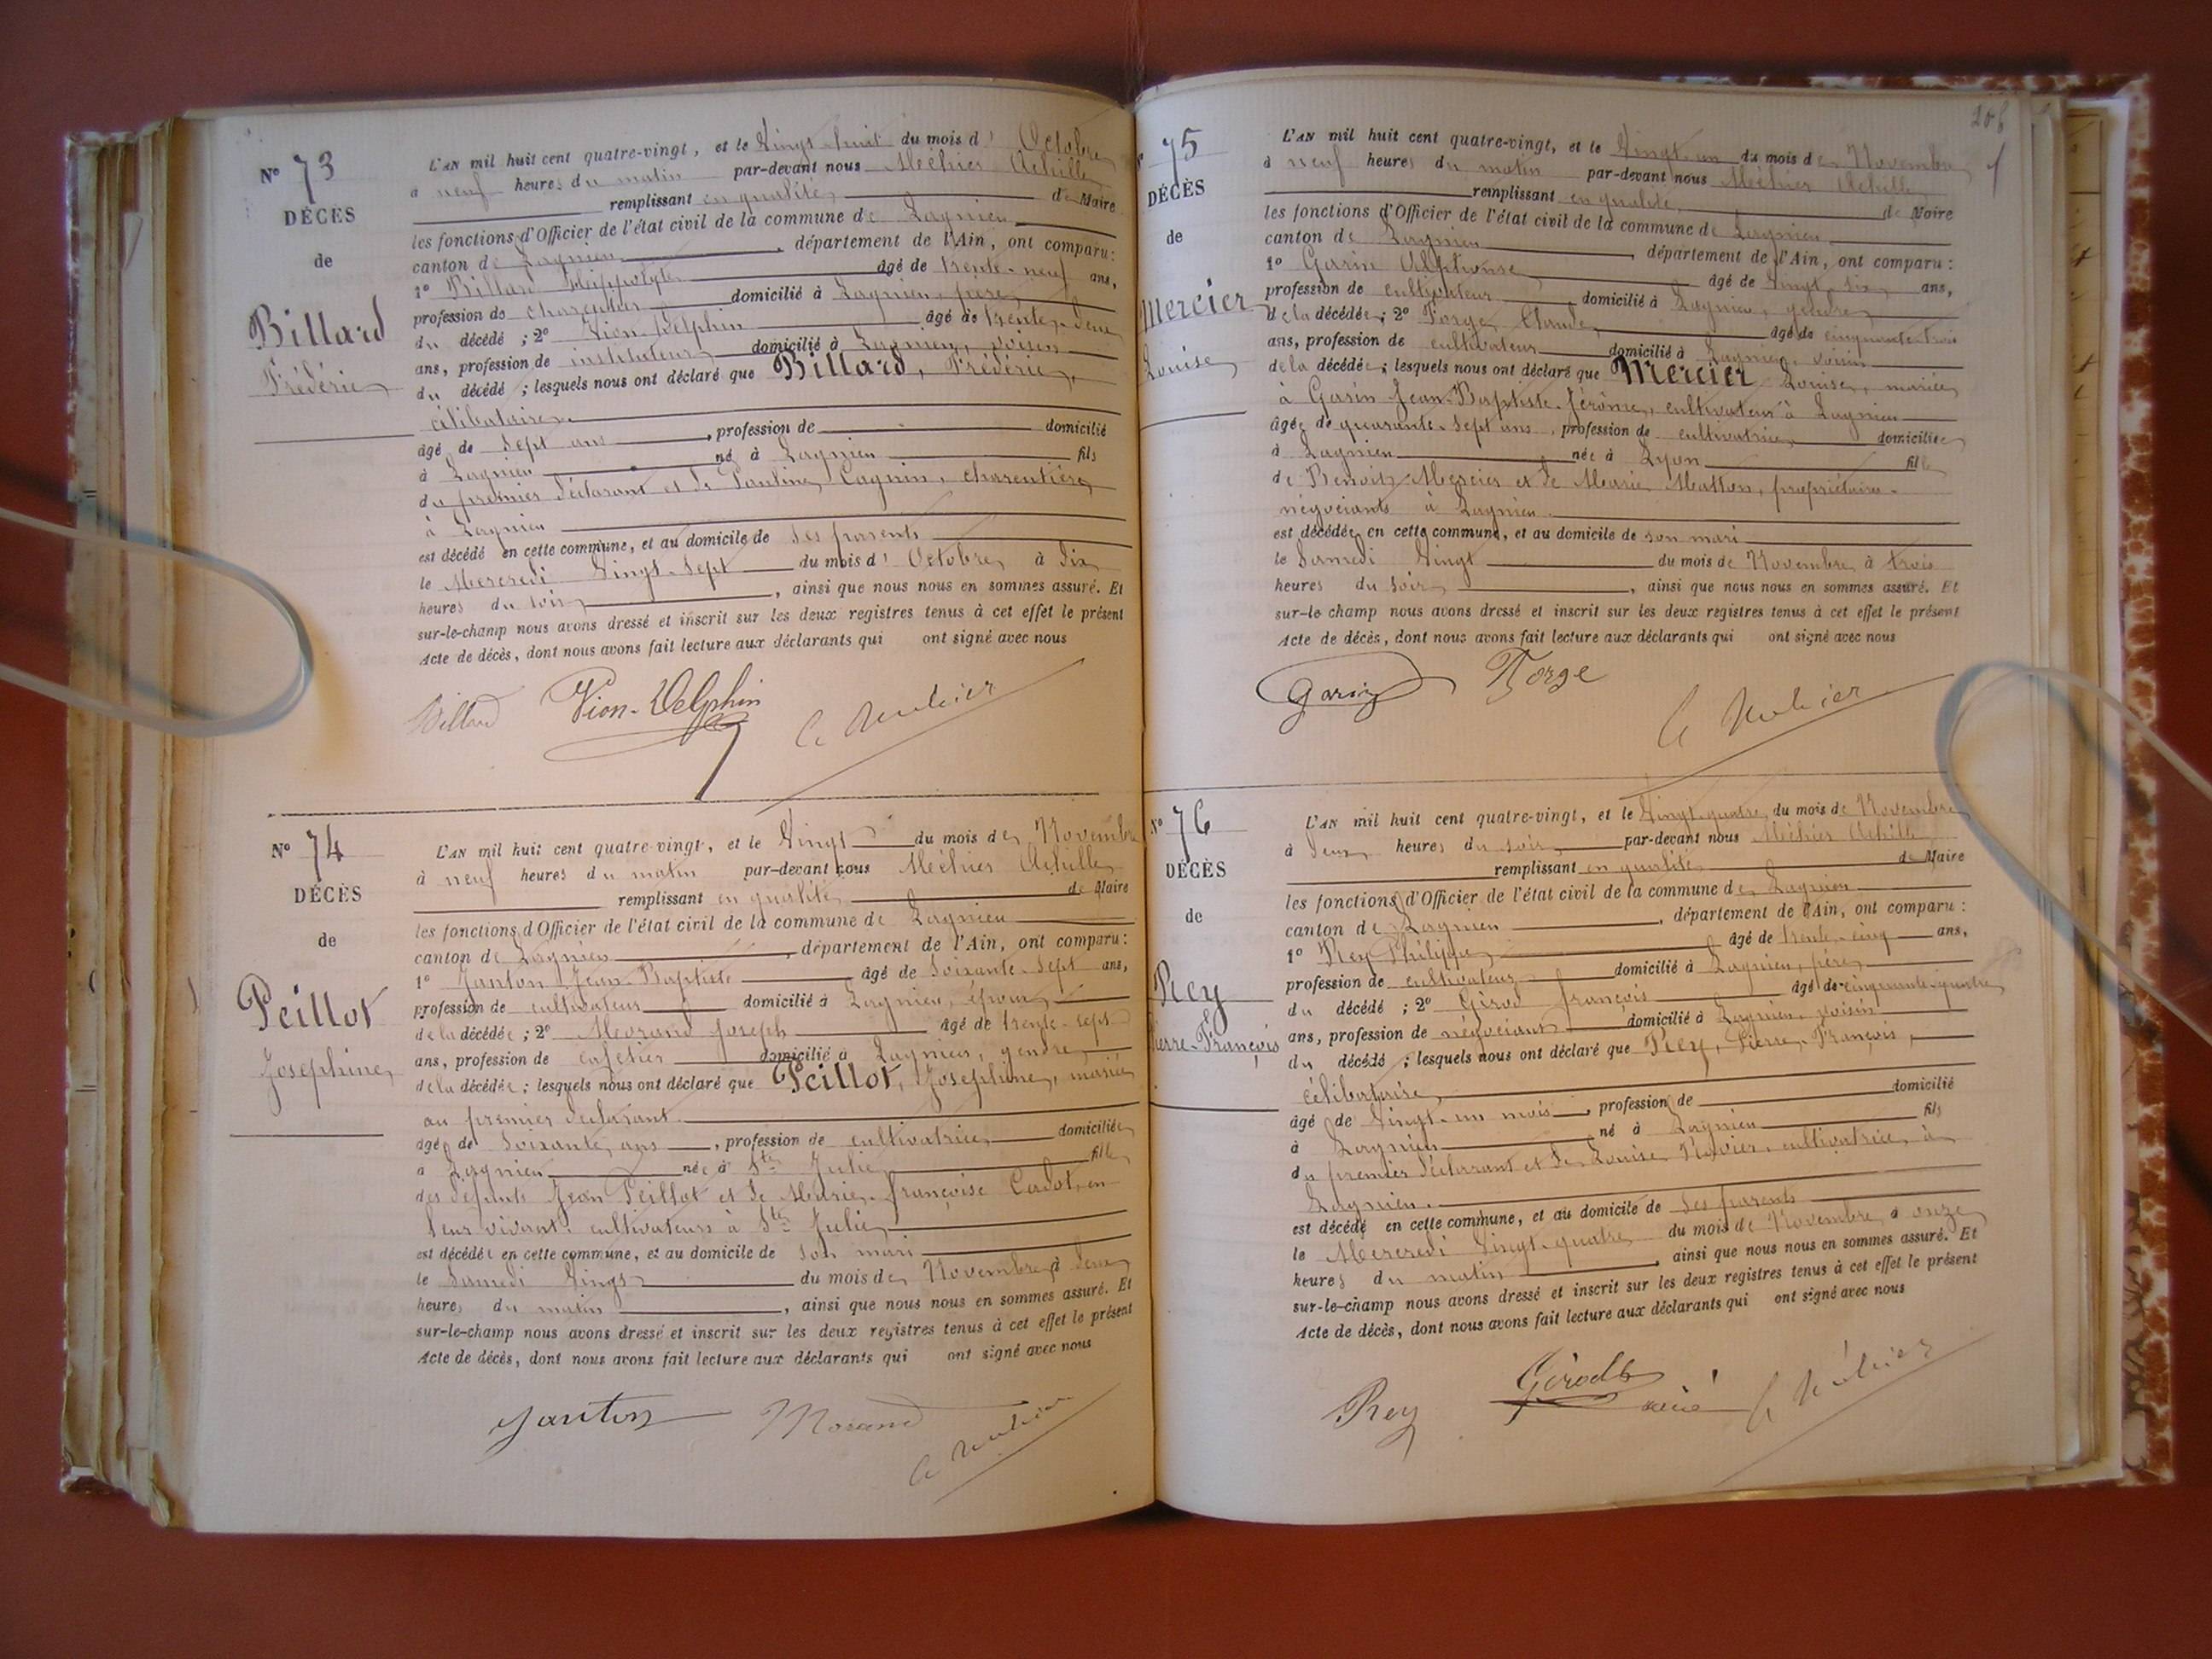 Nº 73
DÉCÈS
de
Billard
Frédéric
L'AN mil huit cent quatre-vingt, et le Vingt-huit du mois d'Octobre
à neuf heures du matin par-devant nous Méhier Achille
remplissant en qualité de Maire
les fonctions d'Officier de l'état civil de la commune de Lagnieu
canton de Lagnieu, département de l'Ain, ont comparu:
1º Billard Hippolyte âgé de trente-neuf ans,
profession de charcutier domicilié à Lagnieu, père
du décédé; 2º Vion-Delphin âgé de trente-deux
ans, profession de instituteur domicilié à Lagnieu, voisin
du décédé; lesquels nous ont déclaré que Billard, Frédéric,
célibataire
âgé de sept ans, profession de domicilié
à Lagnieu né à Lagnieu fils
du premier déclarant et de Pauline Cagnin, charcutière
à Lagnieu
est décédé en cette commune, et au domicile de ses parents
le Mercredi Vingt-sept du mois d'Octobre à six
heures du soir, ainsi que nous nous en sommes assuré. Et
sur-le-champ nous avons dressé et inscrit sur les deux registres tenus à cet effet le présent
Acte de décès, dont nous avons fait lecture aux déclarants qui ont signé avec nous
Billard Vion-Delphin A Méhier
Nº 74
DÉCÈS
de
Peillot
Josephine
L'AN mil huit cent quatre-vingt, et le Vingt du mois de Novembre
à neuf heures du matin par-devant nous Méhier Achille
remplissant en qualité de Maire
les fonctions d'Officier de l'état civil de la commune de Lagnieu
canton de Lagnieu, département de l'Ain, ont comparu:
1º Janton Jean-Baptiste âgé de Soixante-sept ans,
profession de cultivateur domicilié à Lagnieu, époux
de la décédée; 2º Morand Joseph âgé de trente-sept
ans, profession de cafetier domicilié à Lagnieu, gendre
de la décédée; lesquels nous ont déclaré que Peillot, Josephine, mariée
au premier déclarant
âgée de Soixante ans, profession de cultivatrice domiciliée
à Lagnieu née à Ste Julie fille
des défunts Jean Peillot et de Marie-Françoise Cadot, en
leur vivant cultivateurs à Ste Julie
est décédée en cette commune, et au domicile de son mari
le Samedi Vingt du mois de Novembre à deux
heures du matin, ainsi que nous nous en sommes assuré. Et
sur-le-champ nous avons dressé et inscrit sur les deux registres tenus à cet effet le présent
Acte de décès, dont nous avons fait lecture aux déclarants qui ont signé avec nous
Janton Morand A Méhier
206
75
DÉCÈS
de
Mercier
Louise
L'AN mil huit cent quatre-vingt, et le Vingt-un du mois de Novembre
à neuf heures du matin par-devant nous Méhier Achille
remplissant en qualité de Maire
les fonctions d'Officier de l'état civil de la commune de Lagnieu
canton de Lagnieu, département de l'Ain, ont comparu:
1º Garin Alphonse âgé de Vingt-six ans,
profession de cultivateur domicilié à Lagnieu, gendre
de la décédée; 2º Forge Claude âgé de cinquante-trois
ans, profession de cultivateur domicilié à Lagnieu, voisin
de la décédée; lesquels nous ont déclaré que Mercier Louise, mariée
à Garin Jean-Baptiste-Jérôme, cultivateur à Lagnieu
âgée de quarante-sept ans, profession de cultivatrice domiciliée
à Lagnieu née à Lyon fille
de Benoit Mercier et de Marie Matton, propriétaires-
négociants à Lagnieu
est décédée en cette commune, et au domicile de son mari
le Samedi Vingt du mois de Novembre à trois
heures du soir, ainsi que nous nous en sommes assuré. Et
sur-le champ nous avons dressé et inscrit sur les deux registres tenus à cet effet le présent
Acte de décès, dont nous avons fait lecture aux déclarants qui ont signé avec nous
Garin Forge A Méhier
Nº 76
DÉCÈS
de
Rey
Pierre-François
L'AN mil huit cent quatre-vingt, et le Vingt-quatre du mois de Novembre
à deux heures du soir par-devant nous Méhier Achille
remplissant en qualité de Maire
les fonctions d'Officier de l'état civil de la commune de Lagnieu
canton de Lagnieu, département de l'Ain, ont comparu:
1º Rey Philippe âgé de trente-cinq ans,
profession de cultivateur domicilié à Lagnieu, père
du décédé; 2º Girod François âgé de cinquante-quatre
ans, profession de négociant domicilié à Lagnieu, voisin
du décédé; lesquels nous ont déclaré que Rey, Pierre-François,
célibataire
âgé de Vingt-un mois, profession de domicilié
à Lagnieu né à Lagnieu fils
du premier déclarant et de Louise Novier, cultivatrice, à
Lagnieu.
est décédé en cette commune, et au domicile de ses parents
le Mercredi Vingt-quatre du mois de Novembre à onze
heures du matin, ainsi que nous nous en sommes assuré. Et
sur-le-champ nous avons dressé et inscrit sur les deux registres tenus à cet effet le présent
Acte de décès, dont nous avons fait lecture aux déclarants qui ont signé avec nous
Rey Girod ainé A Méhier